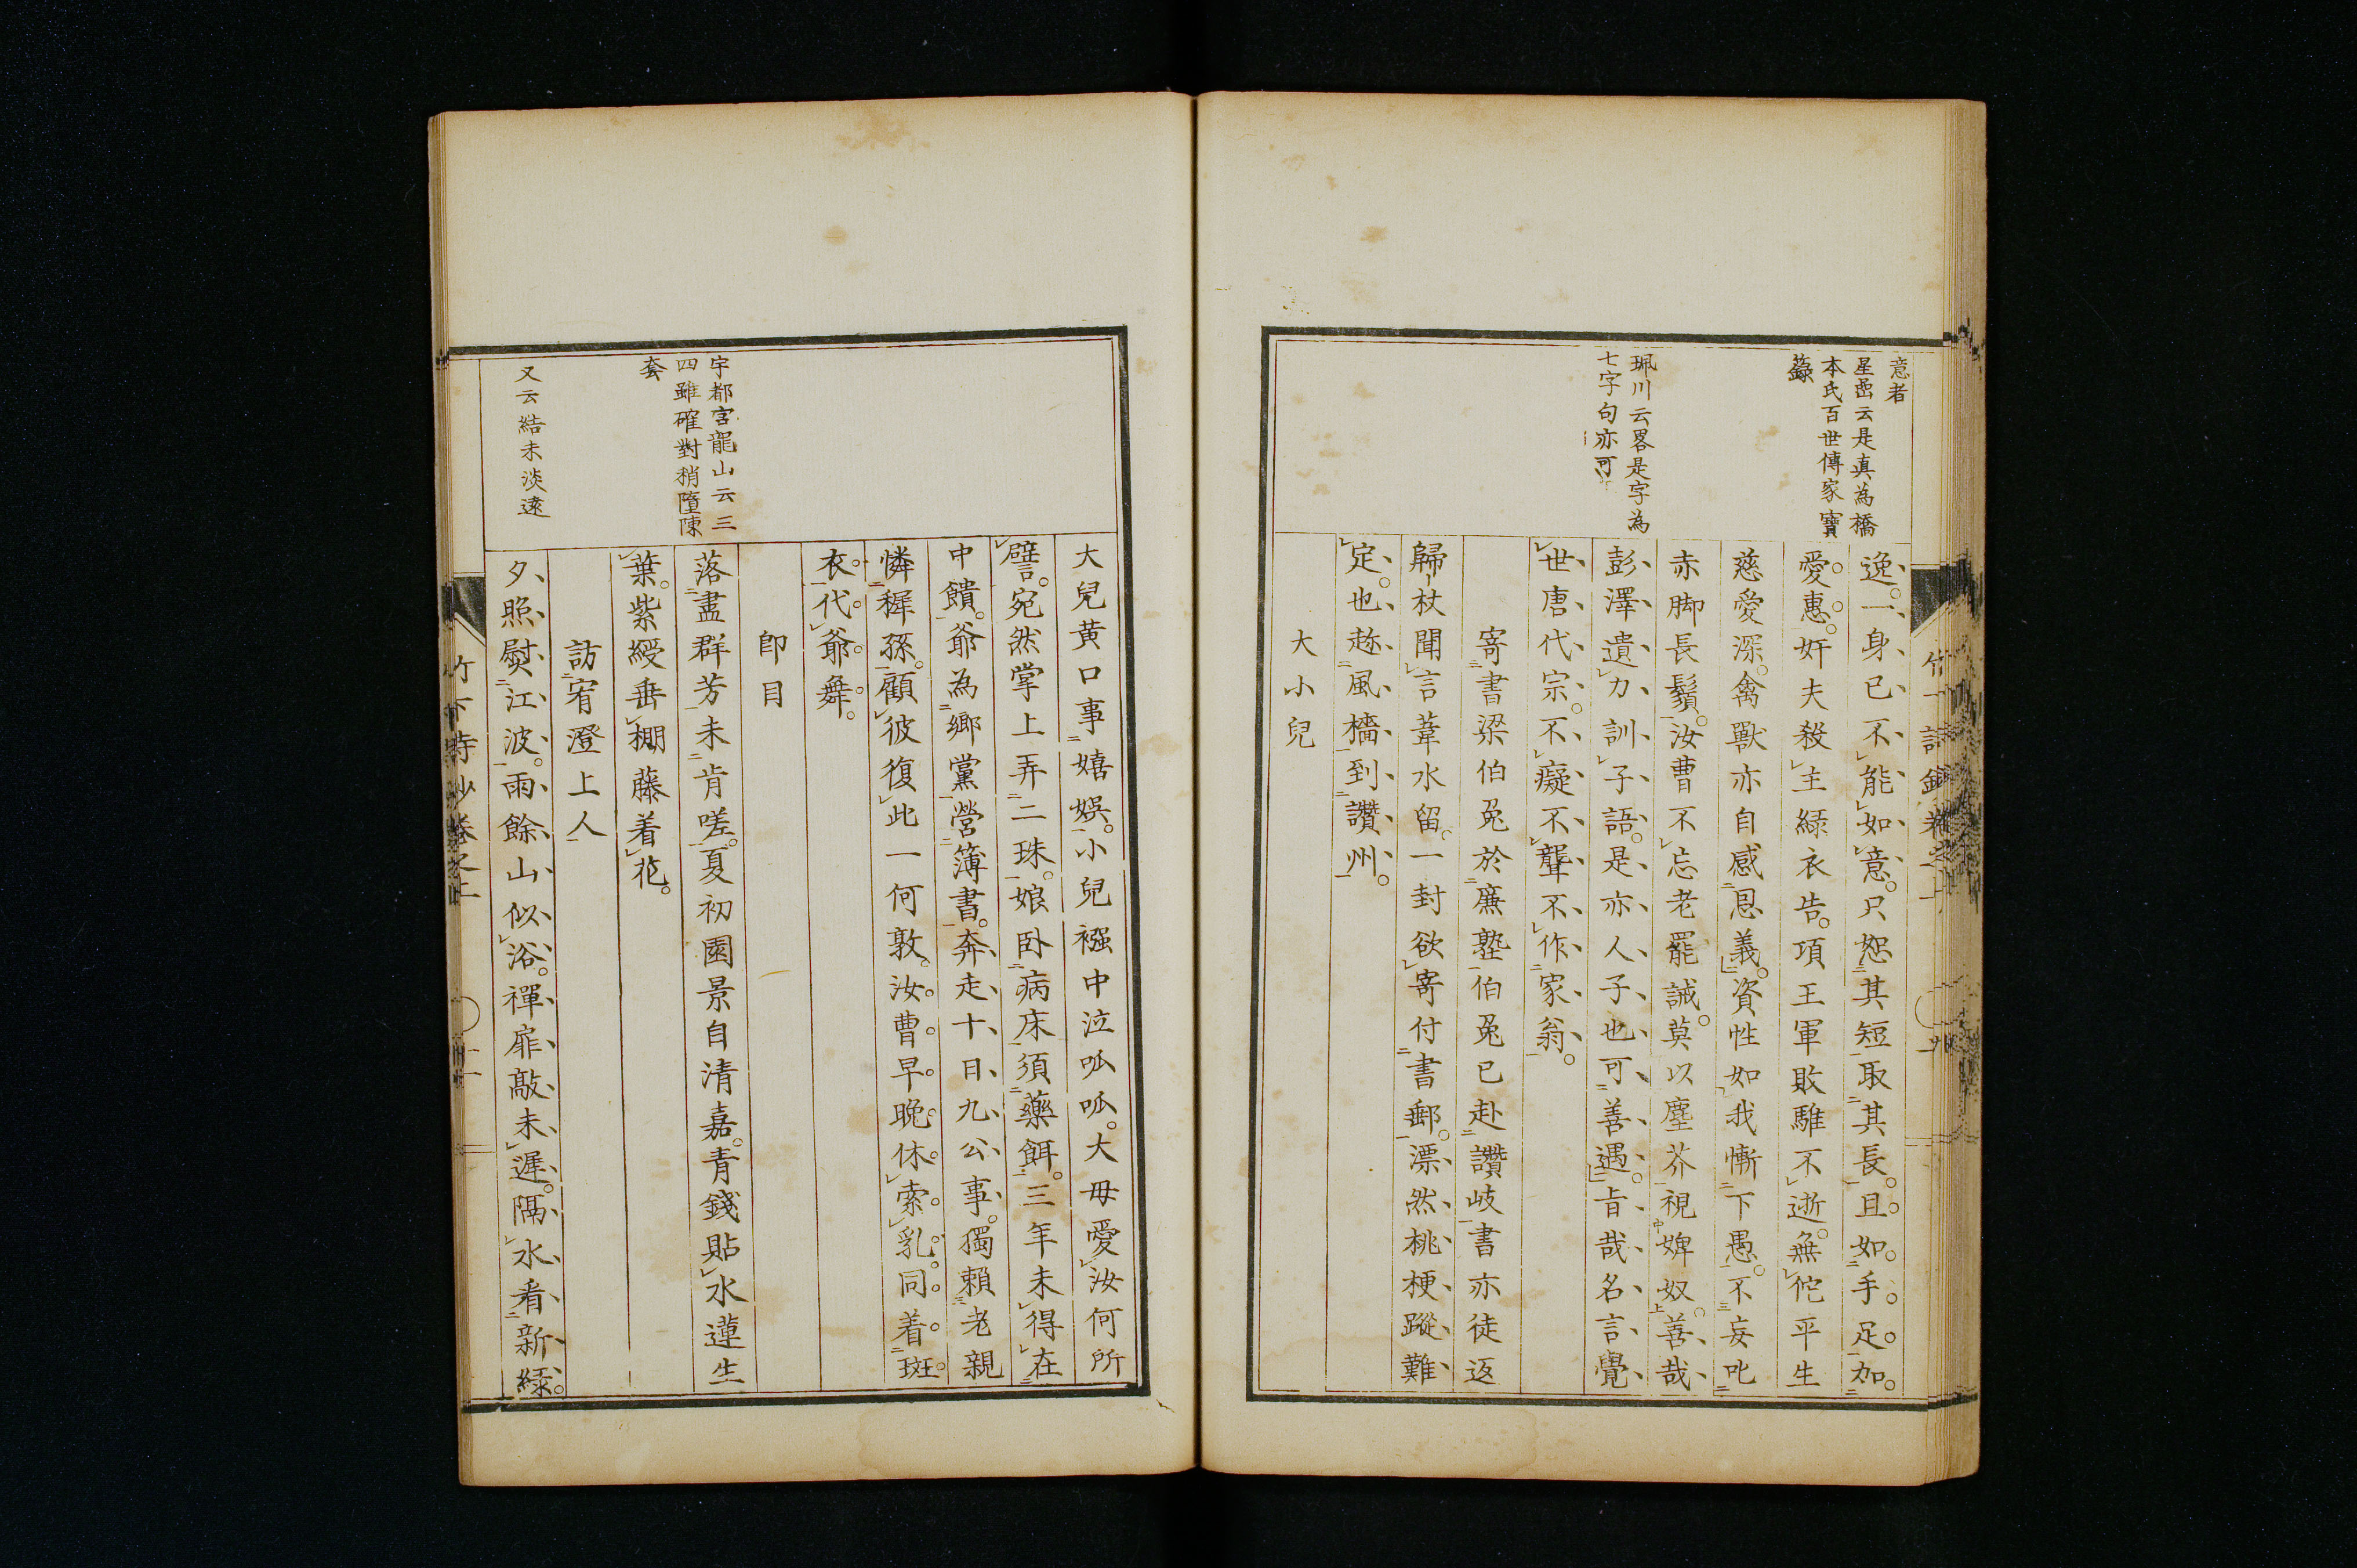 意者
星嵓云是真為橋
本氏百世傳家寶
籙
珮川云畧是字為
七字句亦可
逸。一身已不能如意。只恕其短取其長。且如手足加
愛惠。奸夫殺主緑衣告。項王軍敗騅不逝。無佗平生
慈愛深。禽獸亦自感恩義。資性如我慚下愚。不妄叱
赤脚長鬚。汝曹不忘老罷誡。莫以塵芥視婢奴。善哉
彭澤遺力訓子語。是亦人子也可善遇。旨哉名言覺
世唐代宗。不癡不聾不作家翁。
寄書梁伯兎於廉塾伯兎已赴讚岐書亦徒返
歸杖聞言葦水留。一封欲寄付書郵。漂然桃梗蹤難
定。也趂風檣到讚州。
大小兒
宇都宮龍山云三
四雖確對稍墮陳
套
又云結未淡遠
大兒黄口事嬉娯。小兒襁中泣呱呱。大母愛汝何所
譬。宛然掌上弄二珠。娘卧病床須藥餌。三年未得在
中饋。爺為郷黨營簿書。奔走十日九公事。獨頼老親
憐穉孫。顧彼復此一何敦。汝曹早晚休索乳。同着斑
衣代爺舞。
即目
落盡群芳未肯嗟。夏初園景自清嘉。青錢貼水蓮生
葉。紫綬垂棚藤着花。
訪宥澄上人
夕照熨江波。雨餘山似浴。禪扉敲未遲。隔水看新緑。